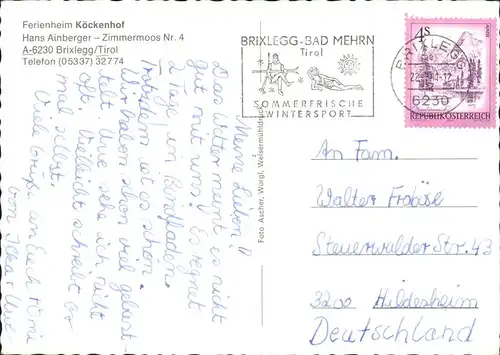 Ferienheim Köckenhof
Hans Ainberger – Zimmermoos Nr. 4
A-6230 Brixlegg/Tirol
Telefon (05337) 32774
BRIXLEGG-BAD MEHRN
Tirol
SOMMERFRISCHE
WINTERSPORT
BRIXLEGG
6230
4S
REPUBLIK ÖSTERREICH
Meine Lieben!!
Das Wetter meint es nicht
gut mit uns! Es regnet
2 Tage in Bindfäden.
Trotzdem ist es schön.
Wir haben schon viel gelust
Uwe ich nicht
oft. Vielleicht schreibt er
mal selbst.
Viele Grüße an Euch
von Uwe
Foto Ascher, Wörgl, Weisermühldruck
An Fam.
Walter Froböse
Steuerwalder Str. 43
3200 Hildesheim
Deutschland